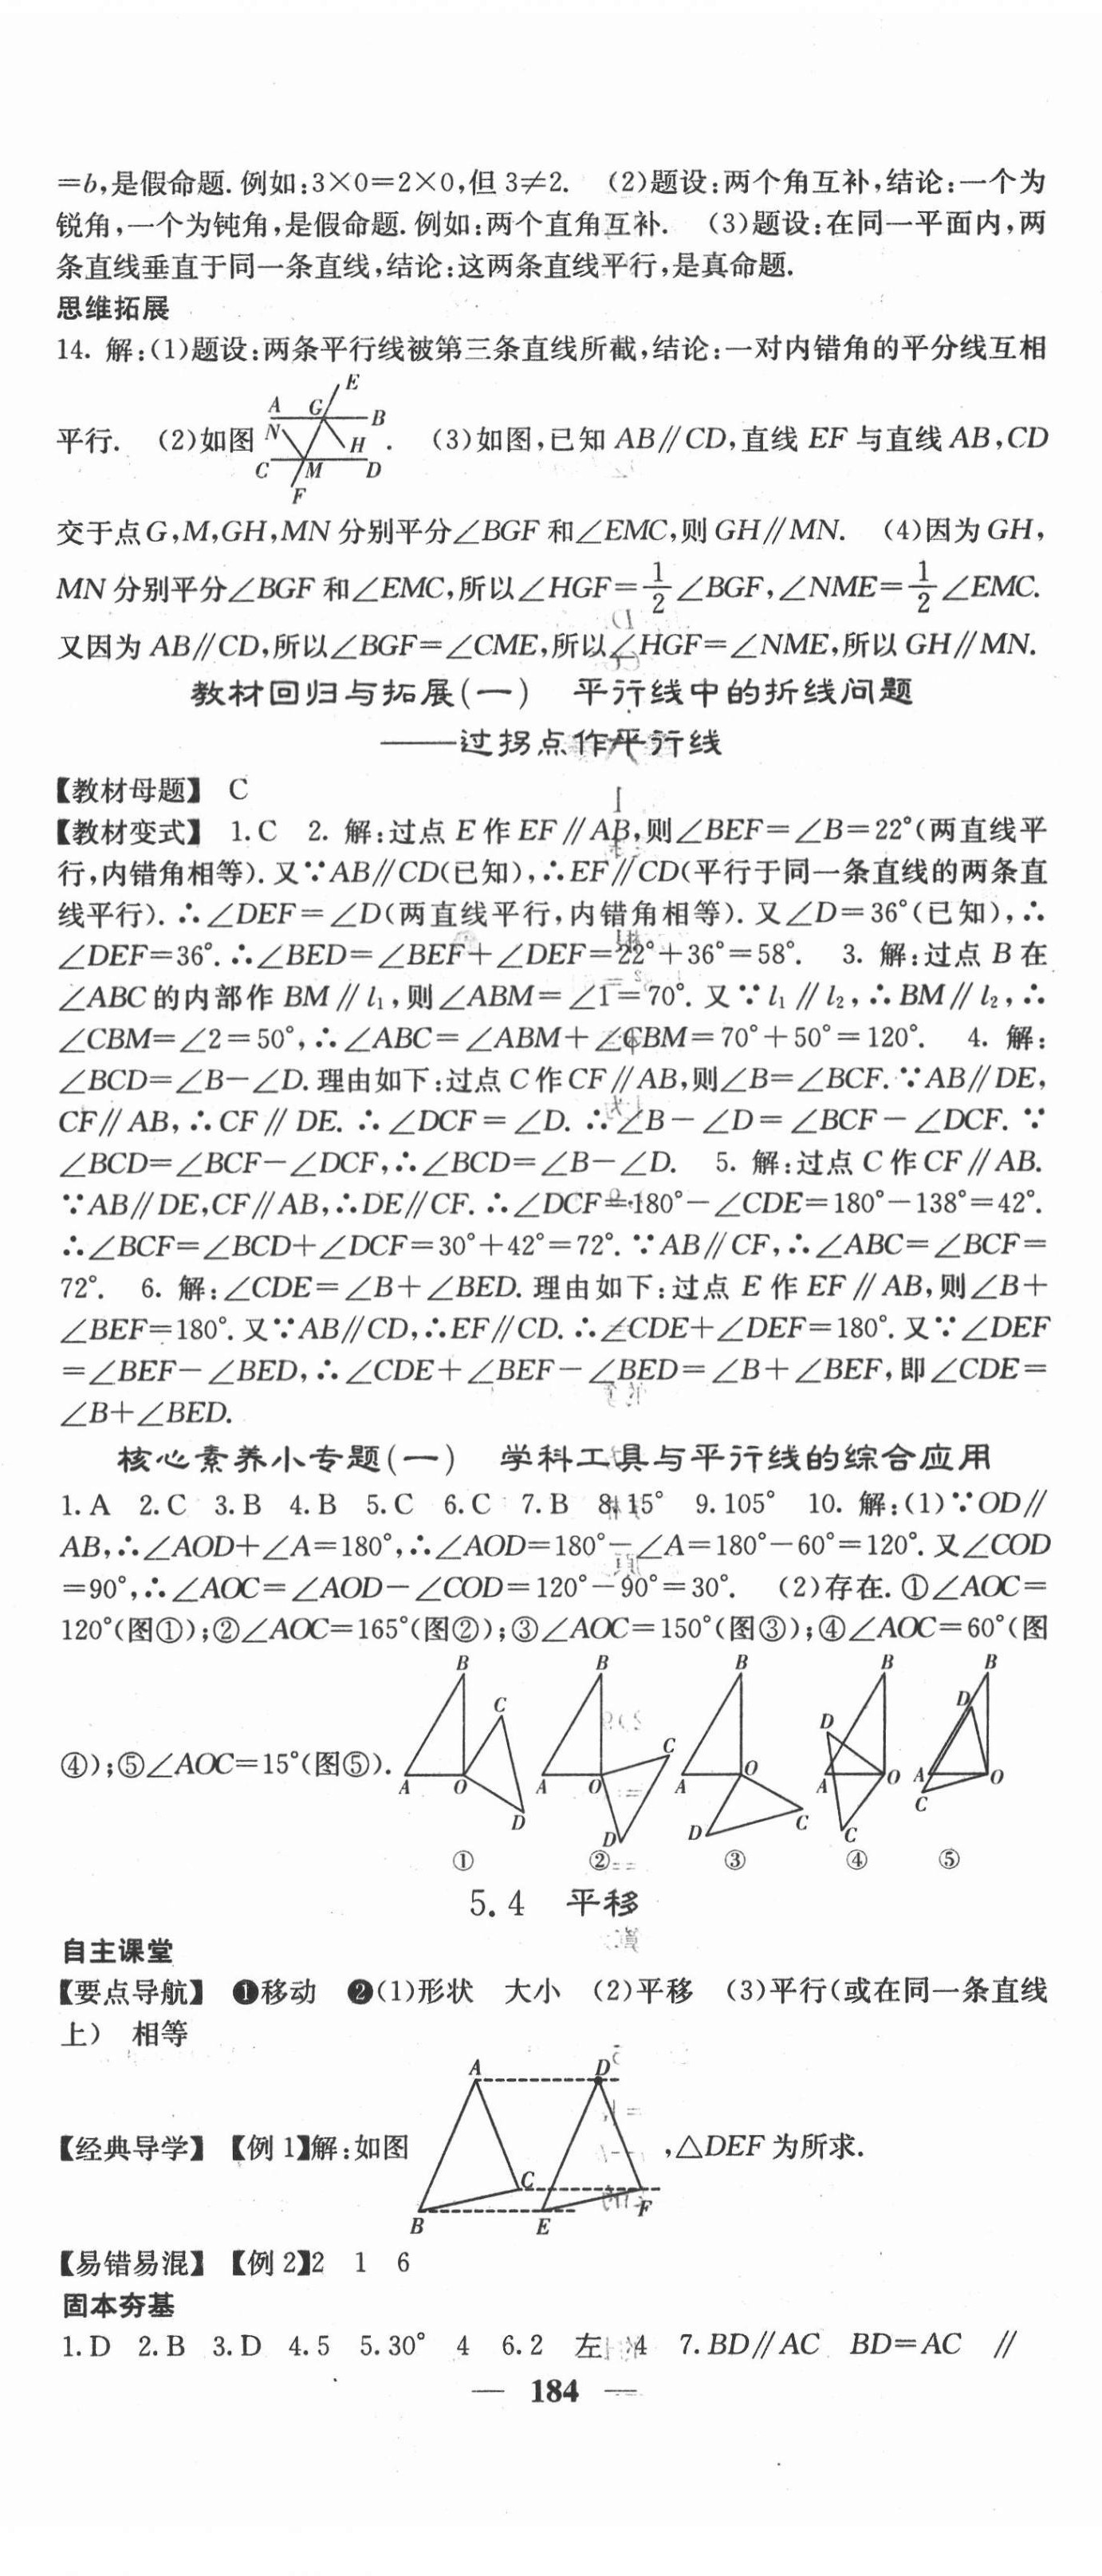 =b,是假命题.例如:3×0=2×0,但3≠2. (2)题设:两个角互补,结论:一个为
锐角,一个为钝角,是假命题.例如:两个直角互补. (3)题设:在同一平面内,两
条直线垂直于同一条直线,结论:这两条直线平行,是真命题.
思维拓展
14. 解:(1)题设:两条平行线被第三条直线所截,结论:一对内错角的平分线互相
平行. (2)如图 A G E B N H C M D F . (3)如图,已知AB∥CD,直线EF与直线AB,CD
交于点G,M,GH,MN分别平分∠BGF和∠EMC,则GH∥MN. (4)因为GH,
MN分别平分∠BGF和∠EMC,所以∠HGF=1/2∠BGF,∠NME=1/2∠EMC.
又因为AB∥CD,所以∠BGF=∠CME,所以∠HGF=∠NME,所以GH∥MN.
教材回归与拓展(一) 平行线中的折线问题
——过拐点作平行线
【教材母题】 C
【教材变式】 1.C 2. 解:过点E作EF∥AB,则∠BEF=∠B=22°(两直线平
行,内错角相等).又∵AB∥CD(已知),∴EF∥CD(平行于同一条直线的两条直
线平行).∴∠DEF=∠D(两直线平行,内错角相等).又∠D=36°(已知),∴
∠DEF=36°.∴∠BED=∠BEF+∠DEF=22°+36°=58°. 3. 解:过点B在
∠ABC的内部作BM∥l₁,则∠ABM=∠1=70°.又∵l₁∥l₂,∴BM∥l₂,∴
∠CBM=∠2=50°,∴∠ABC=∠ABM+∠CBM=70°+50°=120°. 4. 解:
∠BCD=∠B-∠D.理由如下:过点C作CF∥AB,则∠B=∠BCF.∵AB∥DE,
CF∥AB,∴CF∥DE.∴∠DCF=∠D.∴∠B-∠D=∠BCF-∠DCF.∵
∠BCD=∠BCF-∠DCF,∴∠BCD=∠B-∠D. 5. 解:过点C作CF∥AB.
∵AB∥DE,CF∥AB,∴DE∥CF.∴∠DCF=180°-∠CDE=180°-138°=42°.
∴∠BCF=∠BCD+∠DCF=30°+42°=72°.∵AB∥CF,∴∠ABC=∠BCF=
72°. 6. 解:∠CDE=∠B+∠BED.理由如下:过点E作EF∥AB,则∠B+
∠BEF=180°.又∵AB∥CD,∴EF∥CD.∴∠CDE+∠DEF=180°.又∵∠DEF
=∠BEF-∠BED,∴∠CDE+∠BEF-∠BED=∠B+∠BEF,即∠CDE=
∠B+∠BED.
核心素养小专题(一) 学科工具与平行线的综合应用
1.A 2.C 3.B 4.B 5.C 6.C 7.B 8.15° 9.105° 10. 解:(1)∵OD∥
AB,∴∠AOD+∠A=180°,∴∠AOD=180°-∠A=180°-60°=120°.又∠COD
=90°,∴∠AOC=∠AOD-∠COD=120°-90°=30°. (2)存在.①∠AOC=
120°(图①);②∠AOC=165°(图②);③∠AOC=150°(图③);④∠AOC=60°(图
④);⑤∠AOC=15°(图⑤).
B C A O D
B C A O D
B O A D C
B D A O C
B D A O C
① ② ③ ④ ⑤
5.4 平移
自主课堂
【要点导航】 ❶移动 ❷(1)形状 大小 (2)平移 (3)平行(或在同一条直线
上) 相等
【经典导学】【例1】解:如图 A D C B E F ,△DEF为所求.
【易错易混】【例2】2 1 6
固本夯基
1.D 2.B 3.D 4.5 5.30° 4 6.2 左 4 7.BD∥AC BD=AC ∥
— 184 —